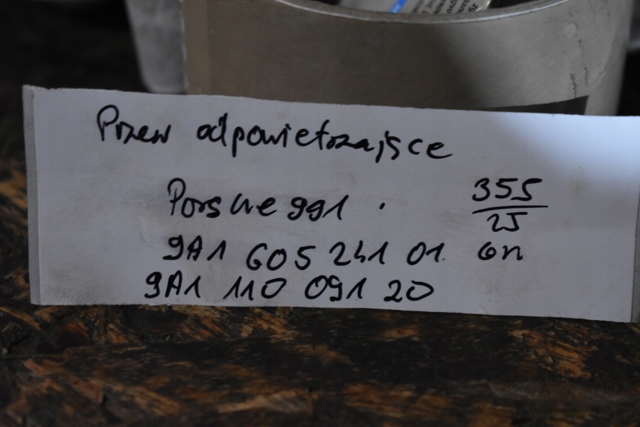 Przew odpowietrzające
Porsche 991 . 355
25
9A1 605 241 01. on
9A1 110 091 20